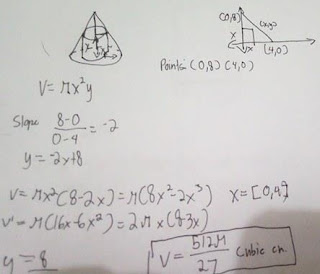 (0,8)
(x,y)
x
(4,0)
Points: (0,8) (4,0)
V = πx²y
Slope 8-0/0-4 = -2
y = -2x+8
V = πx²(8-2x) = π(8x²-2x³) x = [0,4]
V' = π(16x-6x²) = 2πx(8-3x)
y = 8
V = 512π/27 cubic cm.